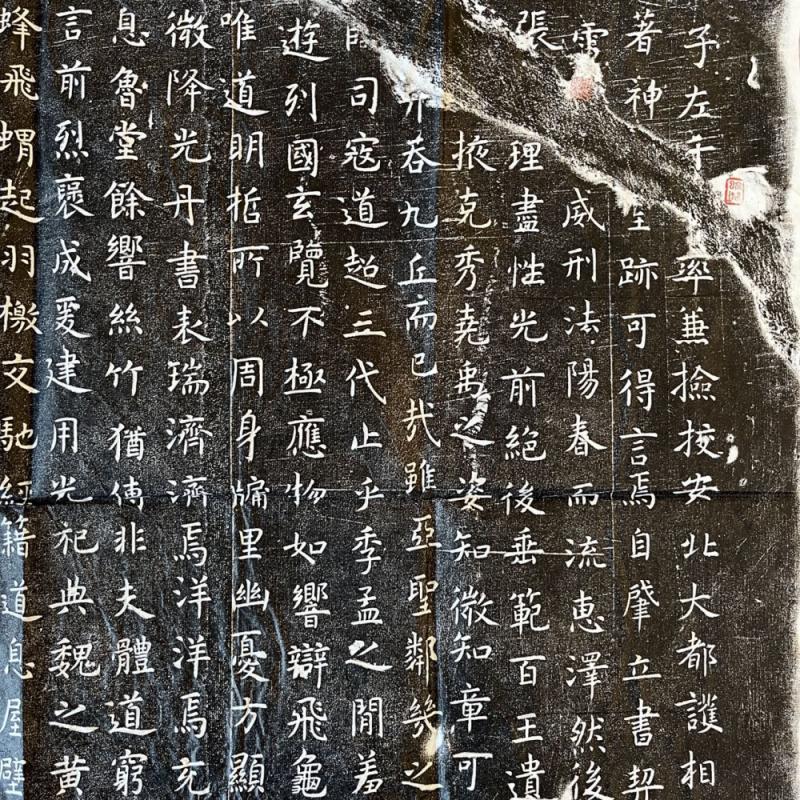 子左千率兼撿挍安北大都護相
著神跡可得言焉自肈立書契
威刑法陽春而流恵澤然後
張理盡性光前絕後垂範百王遺
掖克秀堯禹之姿知微知章可
吞九丘而已哉雖亞聖鄰幾之
司寇道超三代止乎季孟之閒羞
遊列國玄覽不極應物如響辯飛龜
唯道明哲所以周身牗里幽憂方顯
微降光丹書表瑞濟濟焉洋洋焉充
息魯堂餘響絲竹猶傳非夫體道窮
言前烈襃成爰建用光祀典魏之黄
蜂飛蝟起羽檄交馳經籍道息屋壁